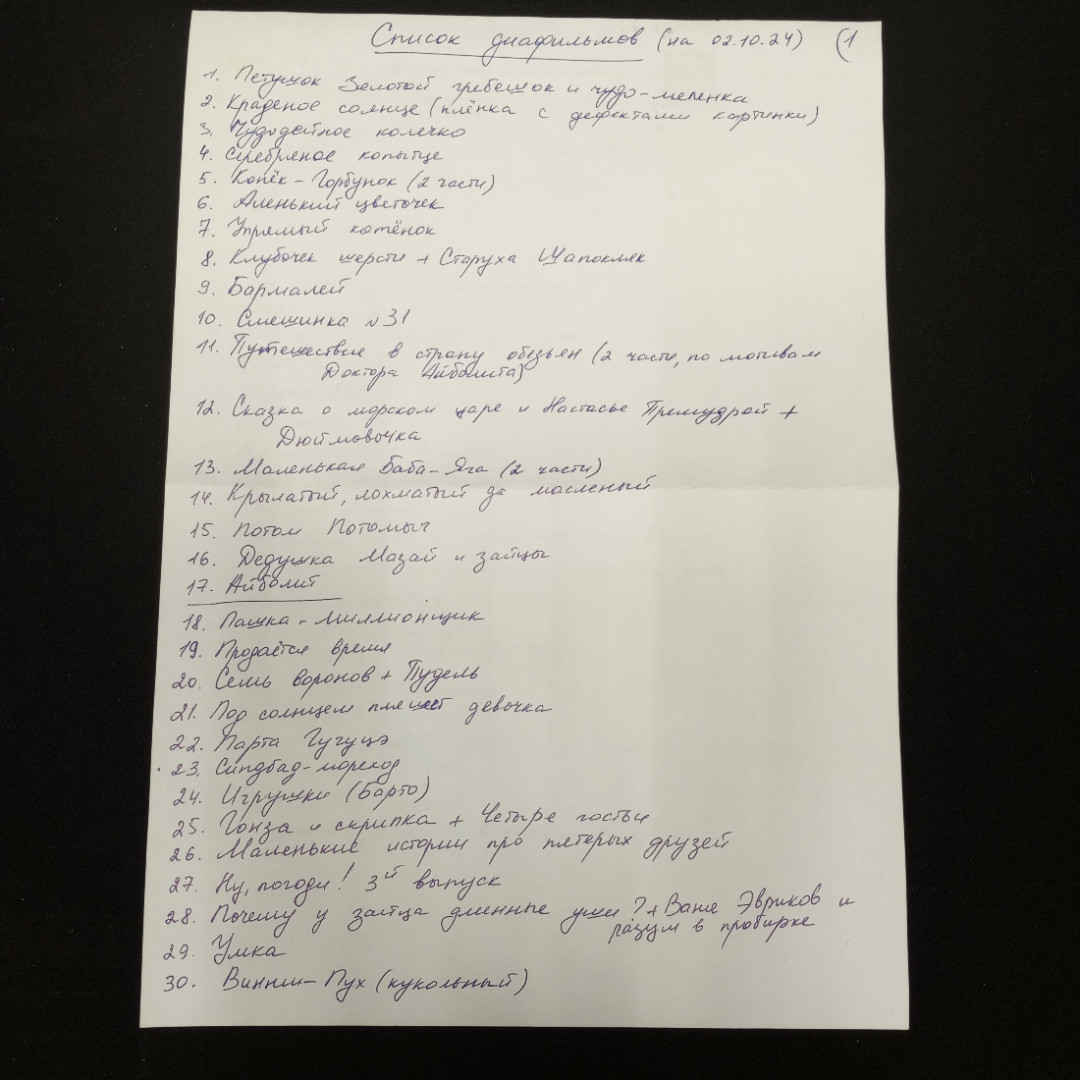 Список диафильмов (на 02.10.24) (1
1. Петушок Золотой гребешок и чудо-меленка
2. Краденое солнце (плёнка с дефектами картинки)
3. Чудодейное колечко
4. Серебряное копытце
5. Конёк-Горбунок (2 части)
6. Аленький цветочек
7. Упрямый котёнок
8. Клубочек шерсти + Старуха Шапокляк
9. Бармалей
10. Смешинка №31
11. Путешествие в страну обезьян (2 части, по мотивам
Доктора Айболита)
12. Сказка о морском царе и Настасье Премудрой +
Дюймовочка
13. Маленькая Баба-Яга (2 части)
14. Крылатый, лохматый да масленый
15. Потом Потомыч
16. Дедушка Мазай и зайцы
17. Айболит
18. Пашка-миллионщик
19. Продаётся время
20. Семь воронов + Пудель
21. Под солнцем пляшет девочка
22. Парта Гугуцэ
23. Синдбад-мореход
24. Игрушки (Барто)
25. Гонза и скрипка + Четыре гостьи
26. Маленькие истории про пятерых друзей
27. Ну, погоди! 3й выпуск
28. Почему у зайца длинные уши? + Ваня Эвриков и
разум в пробирке
29. Умка
30. Винни-Пух (кукольный)